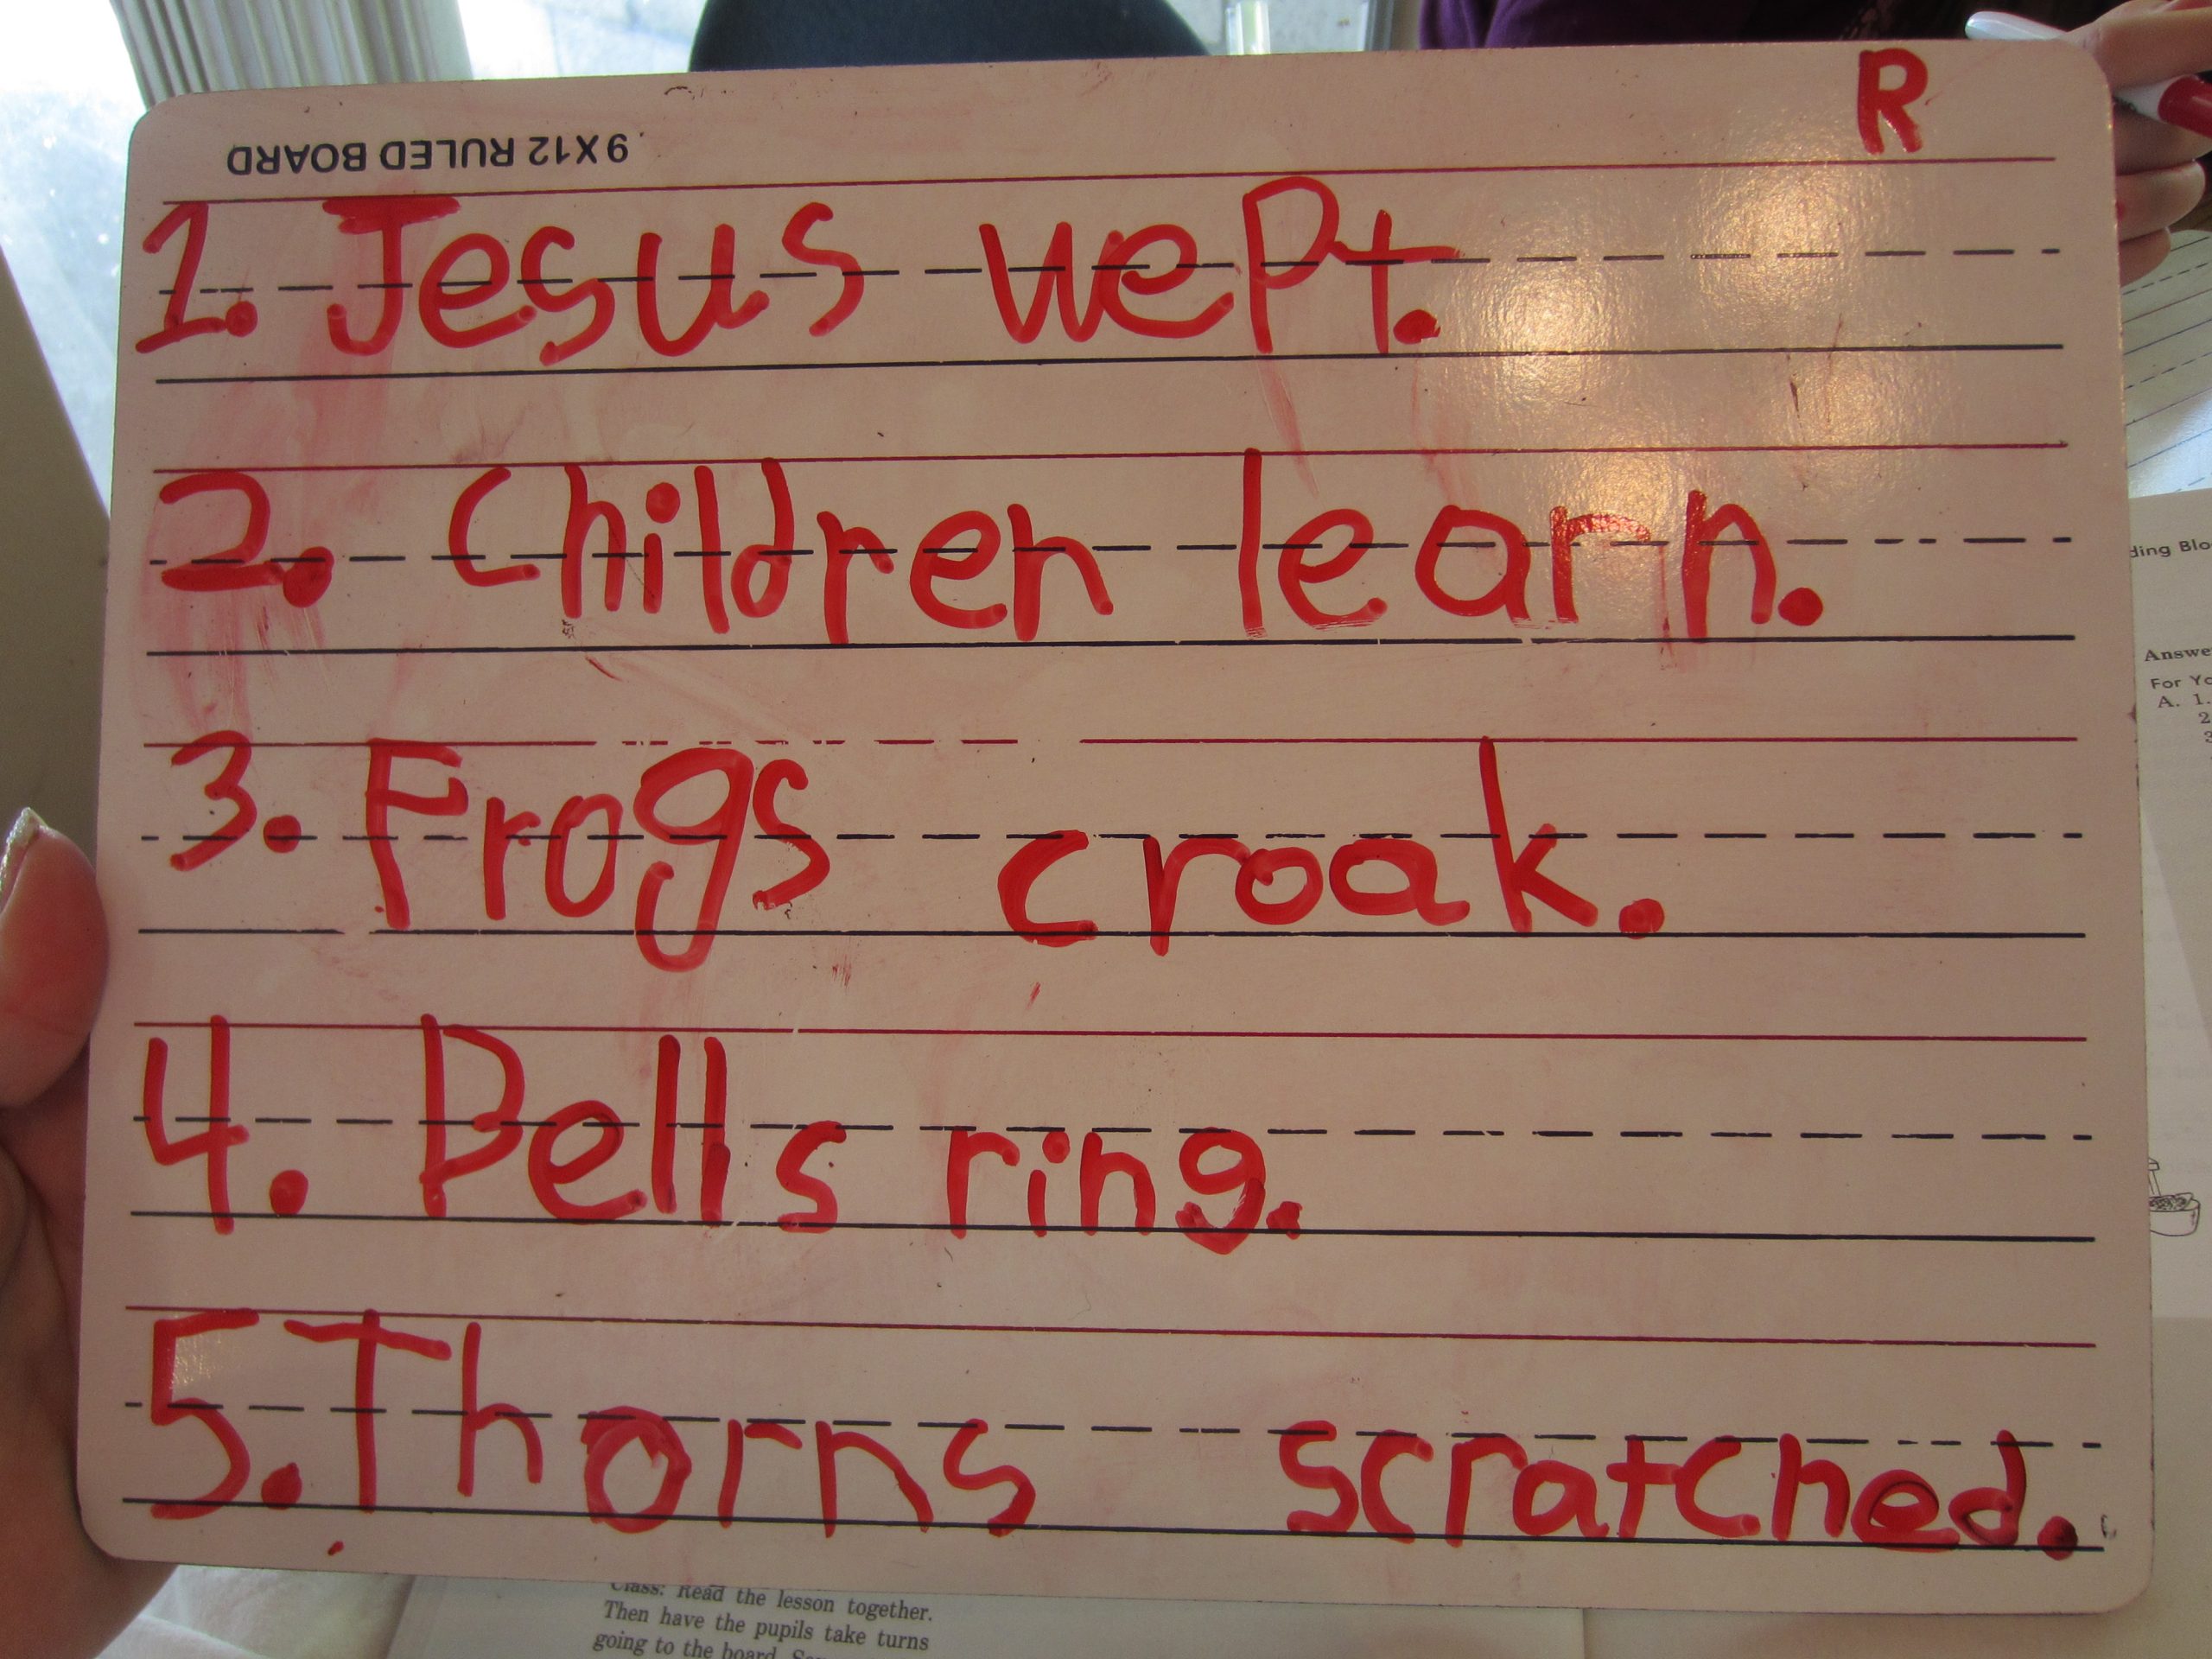 R
9X12 RULED BOARD
1. Jesus wept.
2. Children learn.
3. Frogs croak.
4. Bells ring.
5. Thorns scratched.
ding Blo
Answe
For Yo
A. 1.
2
3
Class: Read the lesson together.
Then have the pupils take turns
going to the board.